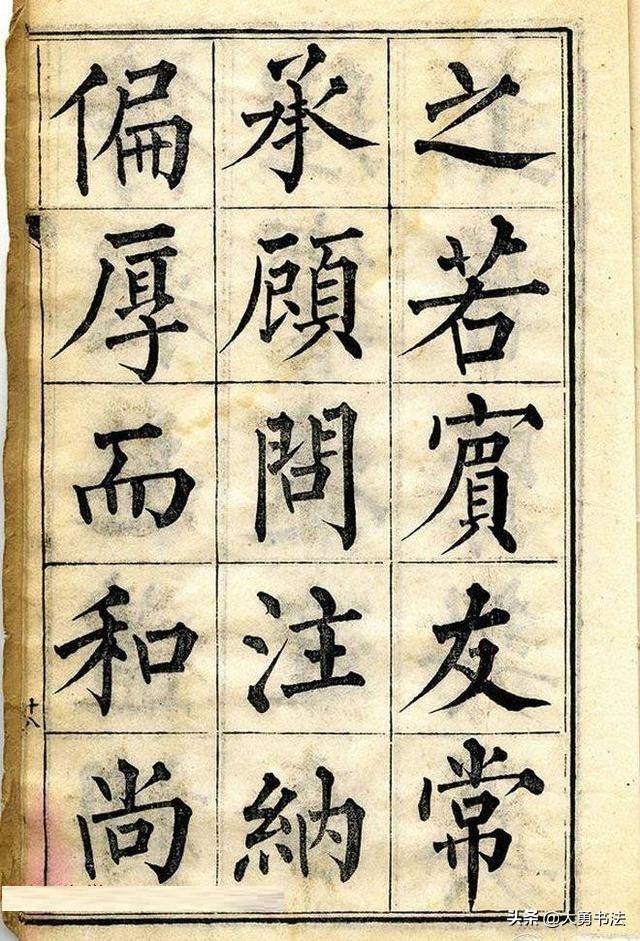 之若賓友常
承顧問注納
偏厚而和尚
十八
头条 @大勇书法